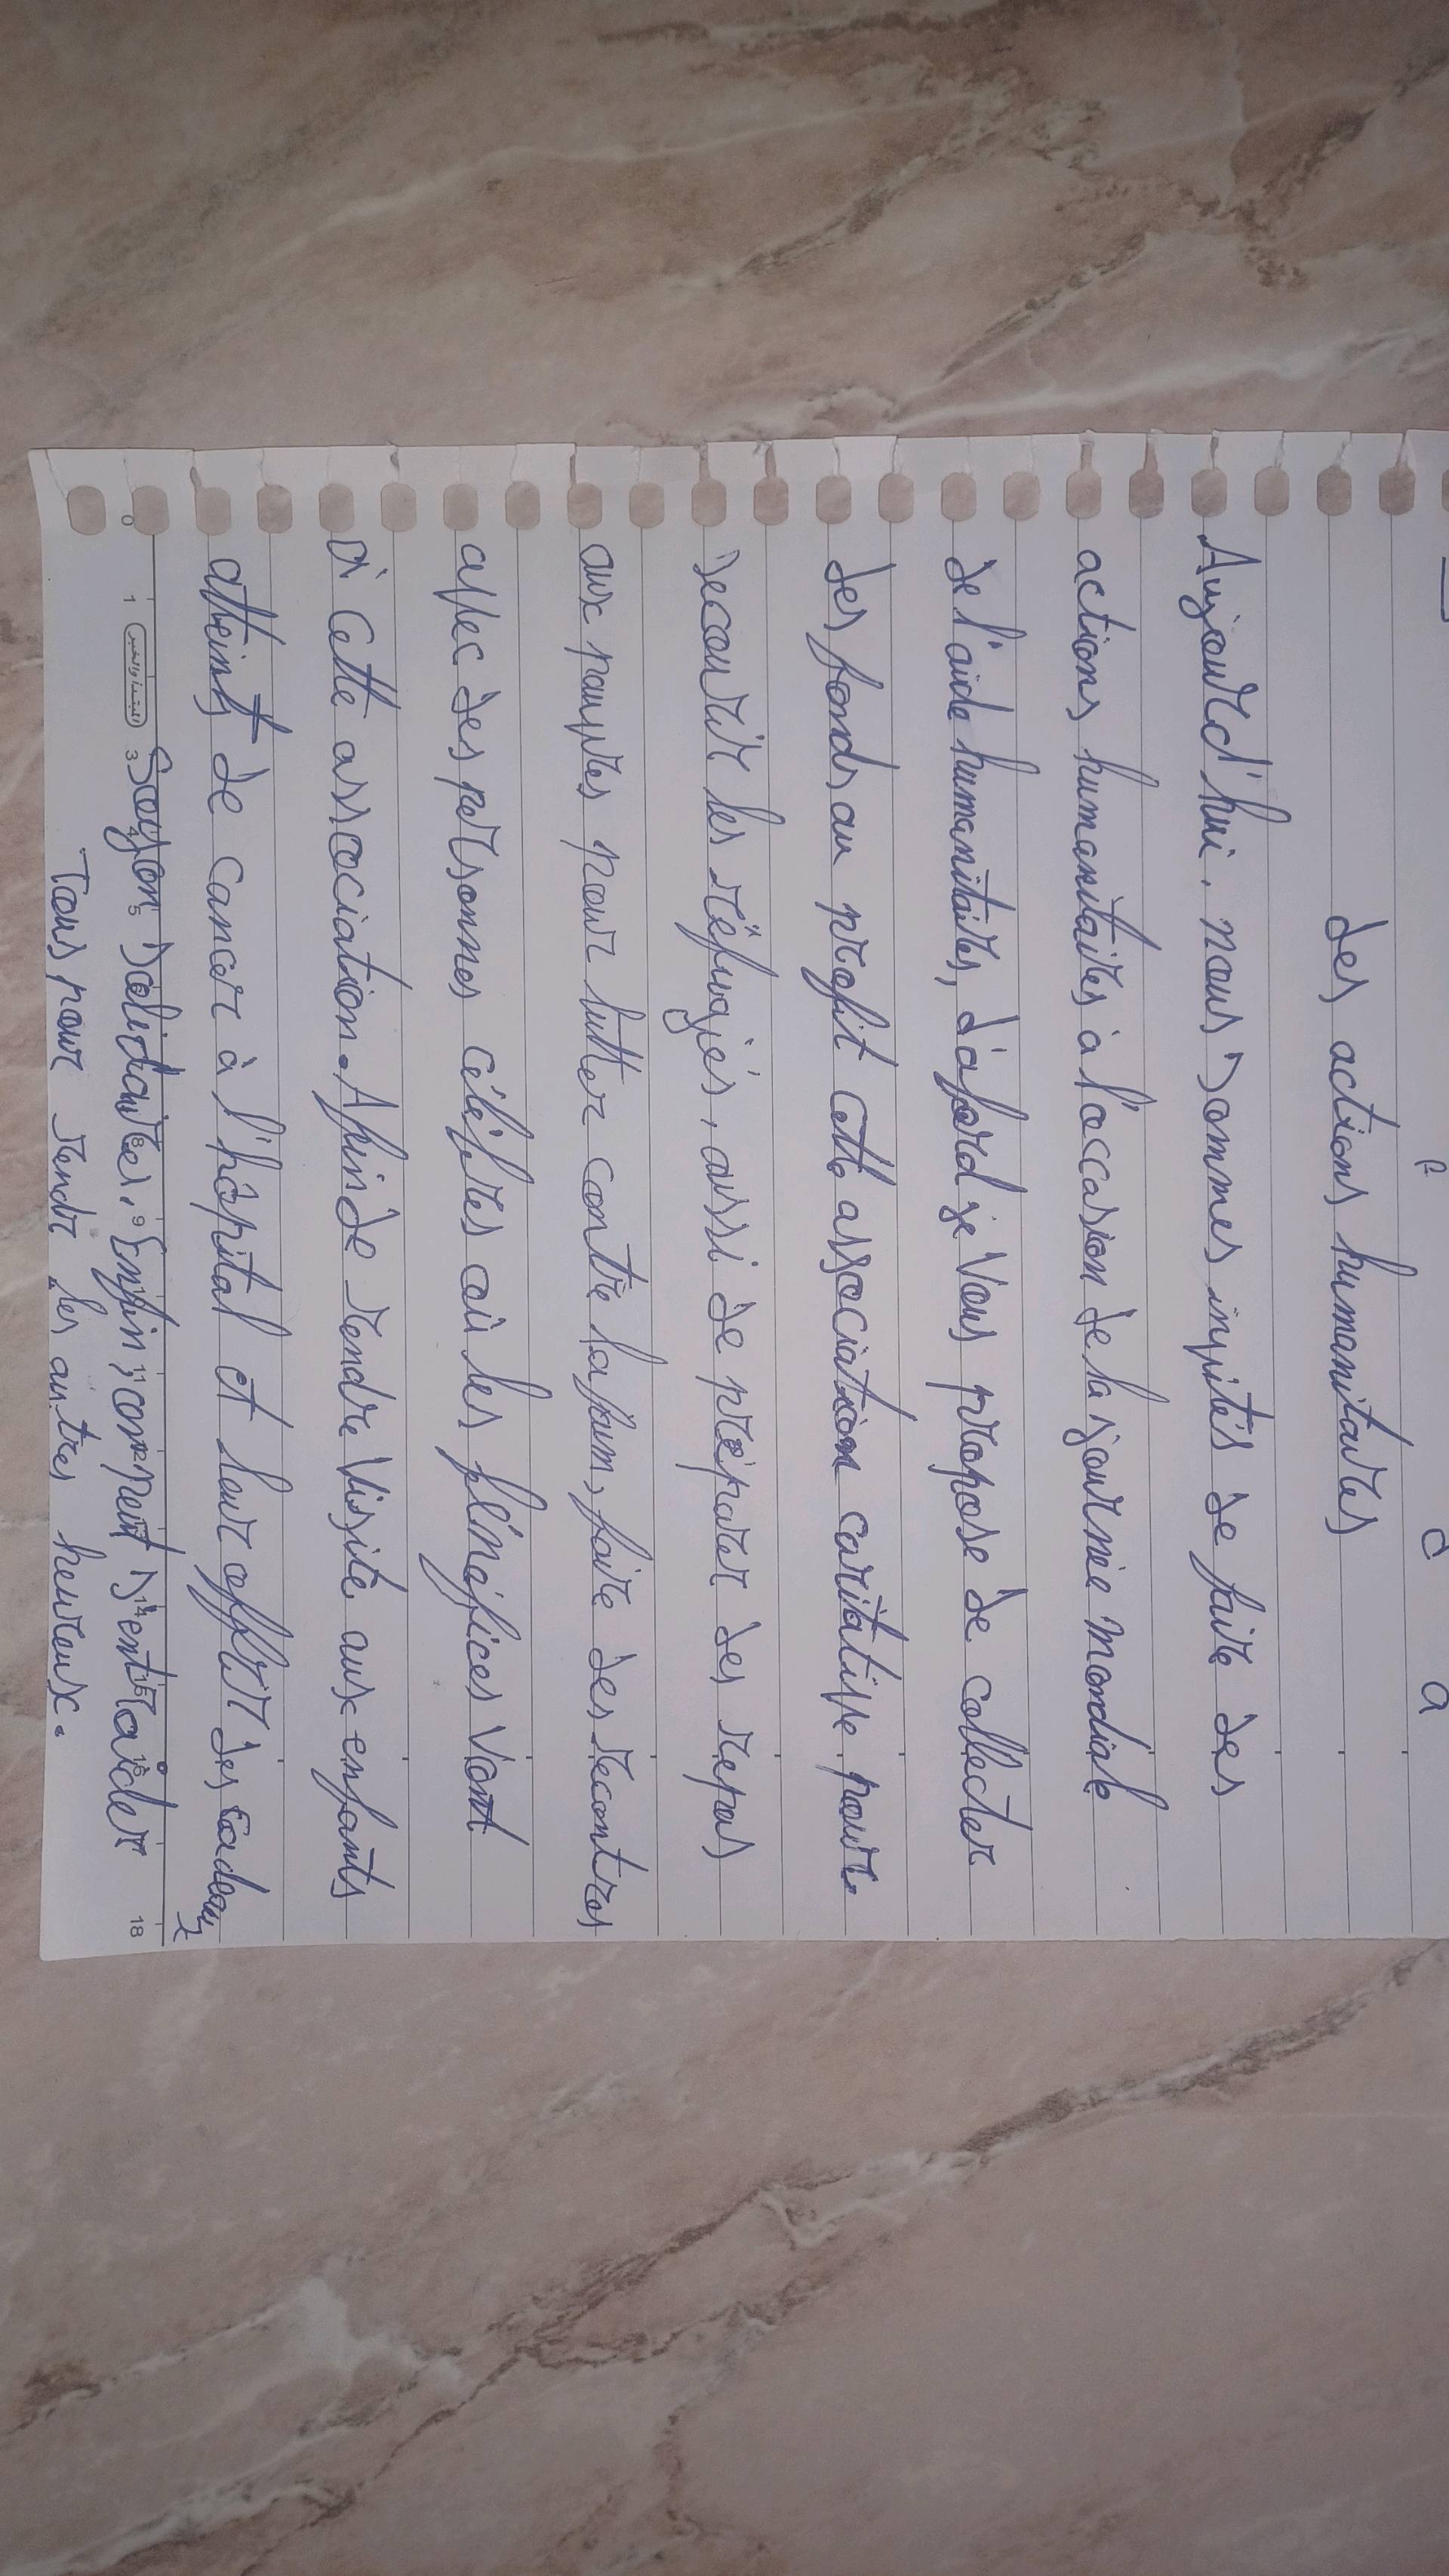 des actions humanitaires
Aujourd'hui, nous sommes invités de faire des
actions humanitaires à l'occasion de la journée mondiale
de l'aide humanitaires, d'abord je vous propose de collecter
des fonds au profit cette association caritative pour
secourir les réfugiés, aussi de préparer des repas
aux pauvres pour lutter contre la faim, faire des recontres
avec des personnes célébres où les bénéfices vont
à cette association. Afin de rendre visite aux enfants
atteints de cancer à l'hôpital et leur offrir des cadeaux
Soyons solidaires. Enfin, on peut s'entraider
Tous pour rendre les autres heureux.
0 1 المبتدأ والخبر 3 4 5 8 9 11 14 15 16 18